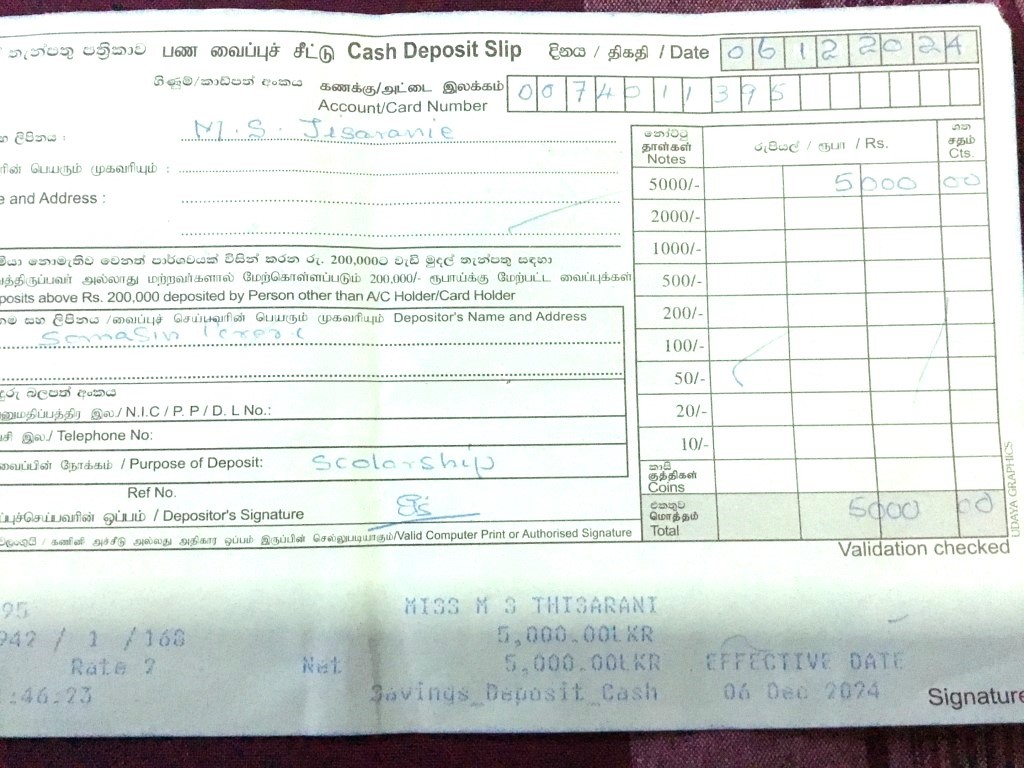 තැන්පතු පත්‍රිකාව பண வைப்புச் சீட்டு Cash Deposit Slip දිනය / திகதி / Date 06122024
ගිණුම්/කාඩ්පත් අංකය கணக்கு/அட்டை இலக்கம் 0074011395
Account/Card Number
ලිපිනය : M.S. Jisaranie
ரின் பெயரும் முகவரியும் :
e and Address :
නෝට්ටු
தாள்கள்
Notes
රුපියල් / ரூபா / Rs.
ශත
சதம்
Cts.
5000/- 5000 00
2000/-
1000/-
500/-
200/-
100/-
50/-
20/-
10/-
කාසි
குத்திகள்
Coins
එකතුව
மொத்தம்
Total 5000 00
මියා නොමැතිව වෙනත් පාර්ශවයක් විසින් කරන රු. 200,000ට වැඩි මුදල් තැන්පතු සඳහා
த்திருப்பவர் அல்லாது மற்றவர்களால் மேற்கொள்ளப்படும் 200,000/- ரூபாய்க்கு மேற்பட்ட வைப்புக்கள்
posits above Rs. 200,000 deposited by Person other than A/C Holder/Card Holder
නම සහ ලිපිනය /வைப்புச் செய்பவரின் பெயரும் முகவரியும் Depositor's Name and Address
දුරු බලපත් අංකය
னுமதிப்பத்திர இல./ N.I.C / P. P / D. L No.:
சி இல./ Telephone No:
வைப்பின் நோக்கம் / Purpose of Deposit: Scolarship
Ref No.
ப்புச்செய்பவரின் ஒப்பம் / Depositor's Signature
வலංගුයි / கணினி அச்சீடு அல்லது அதிகார ஒப்பம் இருப்பின் செல்லுபடியாகும்/Valid Computer Print or Authorised Signature
UDAYA GRAPHICS
Validation checked
95 MISS M S THISARANI
942 / 1 /168 5,000.00LKR
Rate ? Net 5,000.00LKR EFFECTIVE DATE
:46:23 Savings_Deposit_Cash 06 Dec 2024
Signature